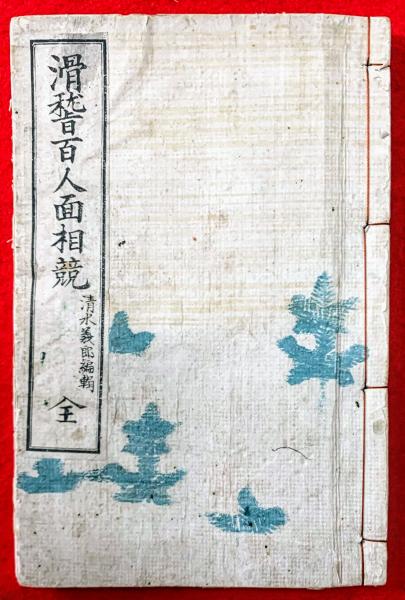 滑稽百人面相競
清水義郎編輯
全